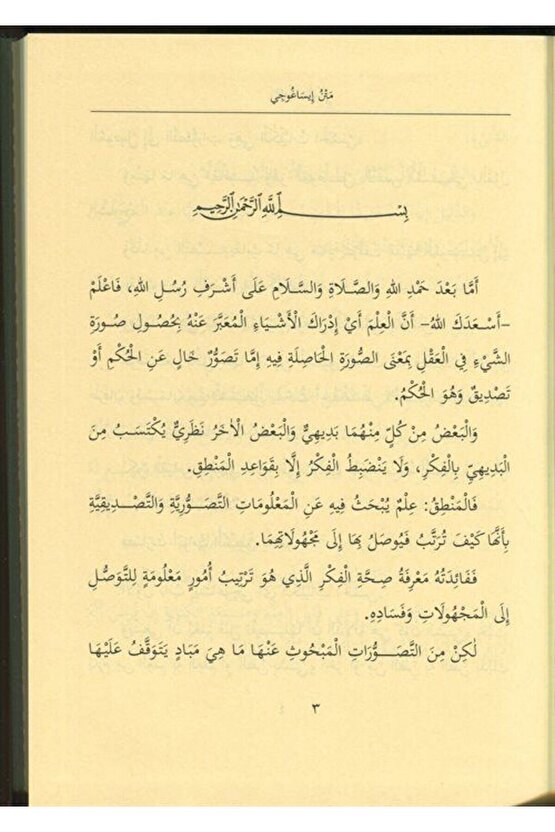 مَتْنُ إِيسَاغُوجِي
بِسْـــــــمِ ٱللَّهِ ٱلرَّحْمَٰنِ ٱلرَّحِيمِ
أَمَّا بَعْدَ حَمْدِ اللهِ وَالصَّلَاةِ وَالسَّلَامِ عَلَى أَشْرَفِ رُسُلِ اللهِ، فَاعْلَمْ
-أَسْعَدَكَ اللهُ- أَنَّ الْعِلْمَ أَيْ إِدْرَاكَ الْأَشْيَاءِ الْمُعَبَّرَ عَنْهُ بِحُصُولِ صُورَةِ
الشَّيْءِ فِي الْعَقْلِ بِمَعْنَى الصُّورَةِ الْحَاصِلَةِ فِيهِ إِمَّا تَصَوُّرٌ خَالٍ عَنِ الْحُكْمِ أَوْ
تَصْدِيقٌ وَهُوَ الْحُكْمُ.
وَالْبَعْضُ مِنْ كُلٍّ مِنْهُمَا بَدِيهِيٌّ وَالْبَعْضُ الْأَخَرُ نَظَرِيٌّ يُكْتَسَبُ مِنَ
الْبَدِيهِيِّ بِالْفِكْرِ، وَلَا يَنْضَبِطُ الْفِكْرُ إِلَّا بِقَوَاعِدِ الْمَنْطِقِ.
فَالْمَنْطِقُ: عِلْمٌ يُبْحَثُ فِيهِ عَنِ الْمَعْلُومَاتِ التَّصَوُّرِيَّةِ وَالتَّصْدِيقِيَّةِ
بِأَنَّهَا كَيْفَ تُرَتَّبُ فَيُوصَلُ بِهَا إِلَى مَجْهُولَاتِهِمَا.
فَفَائِدَتُهُ مَعْرِفَةُ صِحَّةِ الْفِكْرِ الَّذِي هُوَ تَرْتِيبُ أُمُورٍ مَعْلُومَةٍ لِلتَّوَصُّلِ
إِلَى الْمَجْهُولَاتِ وَفَسَادِهِ.
لٰكِنْ مِنَ التَّصَوُّرَاتِ الْمَبْحُوثِ عَنْهَا مَا هِيَ مَبَادٍ يَتَوَقَّفُ عَلَيْهَا
٣